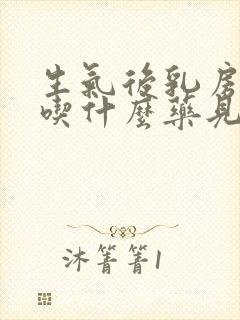 生氣後乳房
喫什麼藥見
沐箐箐1